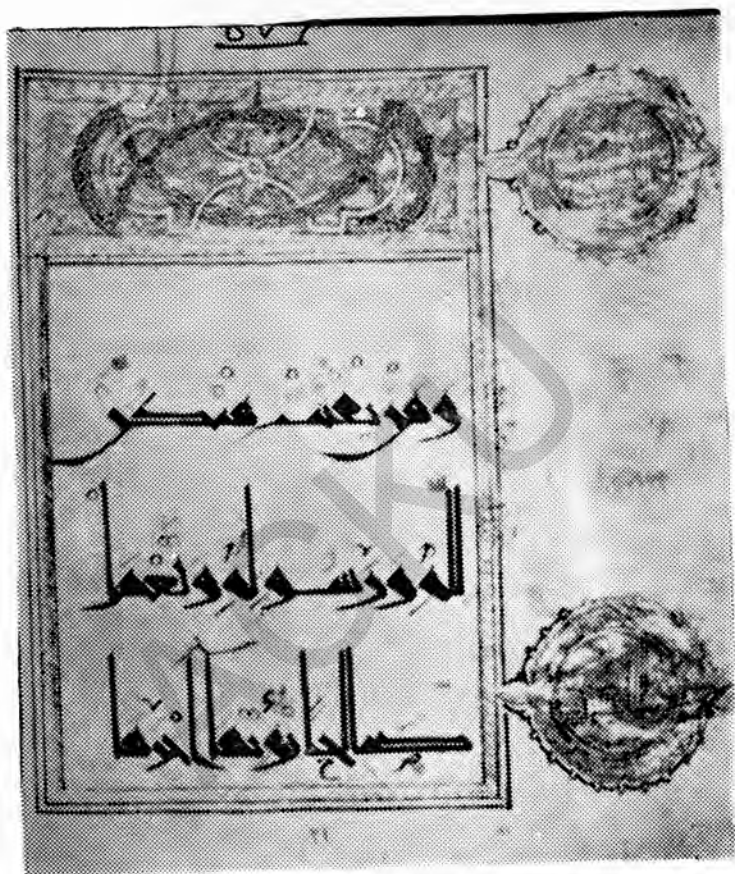 ومن يقنت منكن
لله ورسوله وتعمل
صالحا نؤتها أجرها
ACKU